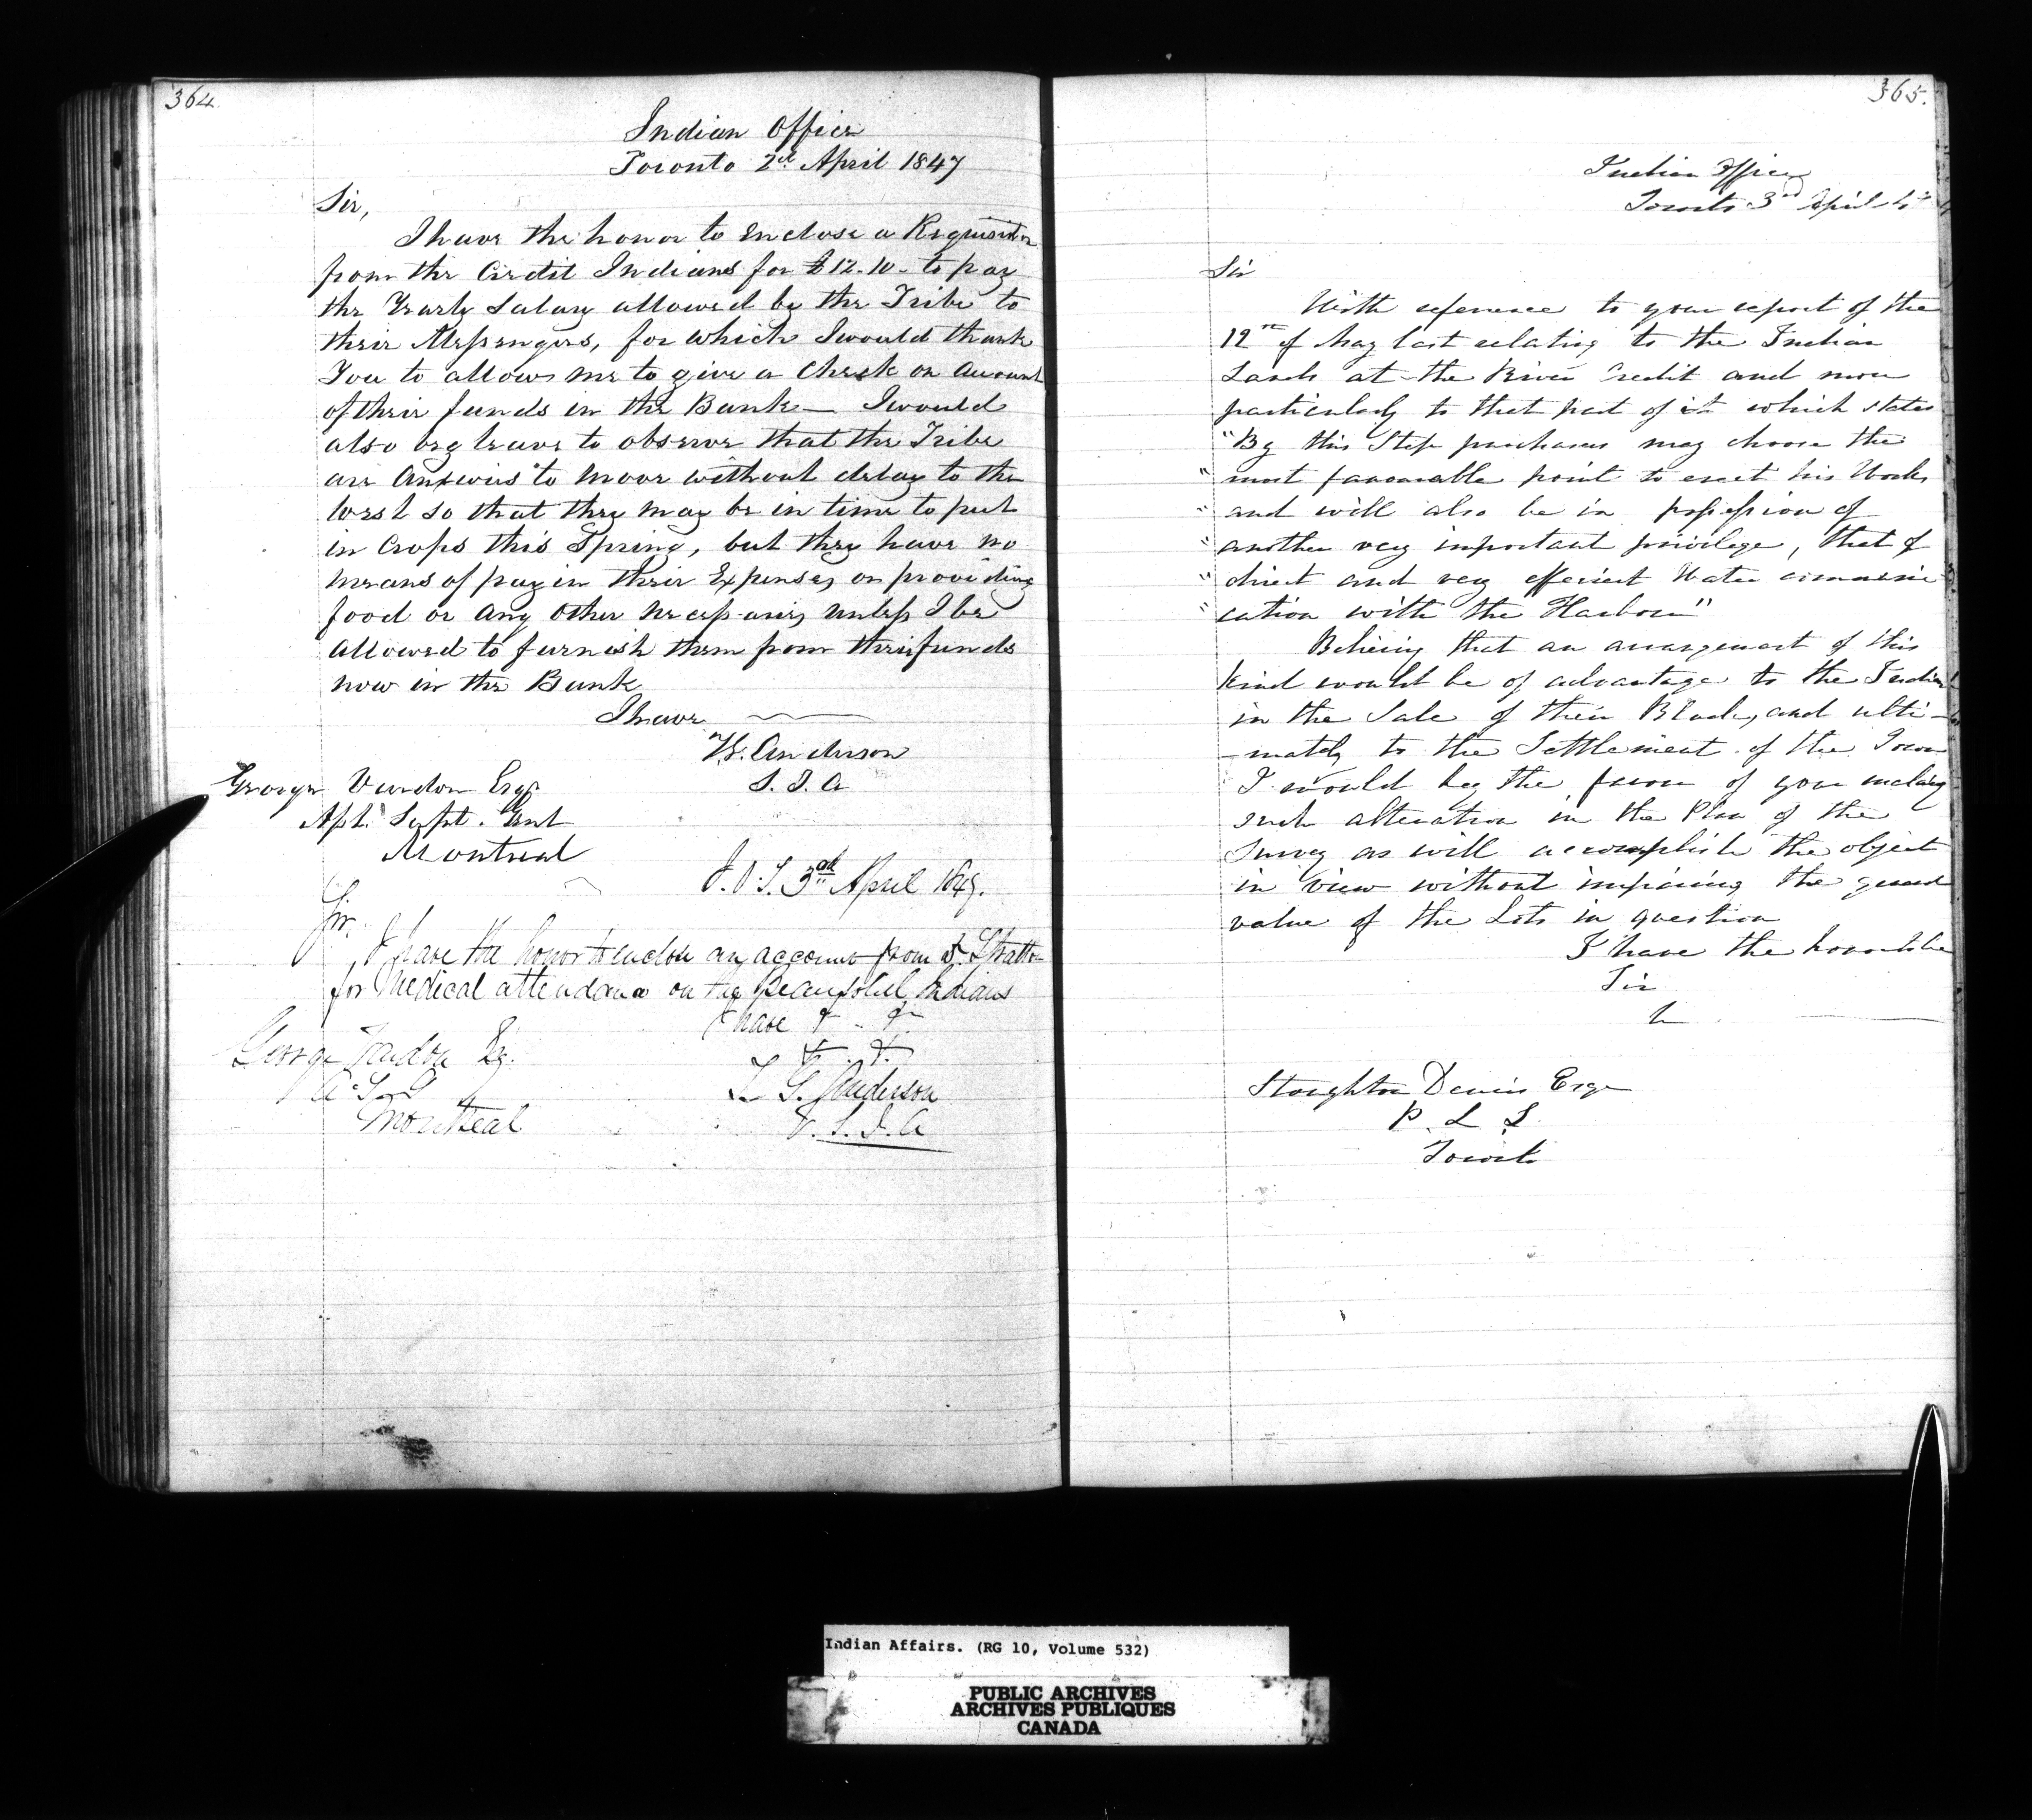 364
Indian Office
Toronto 2d April 1847
Sir,
I have the honor to enclose a Requisition
from the Credit Indians for £12.10 - to pay
the Yearly Salary allowed by the Tribe to
their Messengers, for which I would thank
You to allow me to give a Check on Account
of their funds in the Bank — I would
also beg leave to observe that the Tribe
are Anxious to move without delay to the
West so that they may be in time to put
in Crops this Spring, but they have no
means of payin their Expenses or providing
food or any other necessaries unless I be
allowed to furnish them from their funds
now in the Bank
I have
T.G. Anderson
S. I. A
George Vardon Esqr
Asst. Supt. Genl
Montreal
I.O.T. 3rd April 1847.
Sir.
I have the honor to enclose an account from Dr. Stratton
for Medical attendance on the Beausoliel Indians
I have
T G. Anderson
V. S. I. A
George Vardon Esq.
A. S. G
Montreal
365.
Indian Office
Toronto 3rd April 47
Sir
With reference to your report of the
12th of May last relating to the Indian
Lands at the River Credit and more
particularly to that part of it which states
"By this Step purchasers may choose the
" most favourable point to erect his Works
" and will also be in possession of
" another very important privilege, that of
" direct and very efficient Water communi
" cation with the Harbour"
Believing that an arrangement of this
kind would be of advantage to the Indians
in the Sale of their Block, and ulti-
-mately to the Settlement of the Town
I would beg the favor of your making
such alteration in the Plan of the
Survey as will accomplish the object
in view without impairing the general
value of the Lots in question
I have the honor to be
Sir
Stoughton Dennis Esqr
P. L. S.
Toronto
Indian Affairs. (RG 10, Volume 532)
PUBLIC ARCHIVES
ARCHIVES PUBLIQUES
CANADA